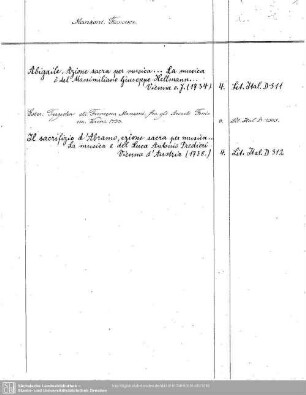 Manzoni, Francesca
Abigaile. Azione sacra per musica... La musica
è del Massimiliano Giuseppe Hellmann...
Vienna o. J. (1734) 4. Lit. Ital. D 311
Ester. Tragedia di Francesca Manzoni fra gli Arcadi
1733. 8.
Il sacrifizio d'Abramo, azione sacra per musica...
La musica è del Luca Antonio Predieri
Vienna d'Austria (1738.) 4. Lit. Ital. D 312
Sächsische Landesbibliothek -
Staats- und Universitätsbibliothek Dresden